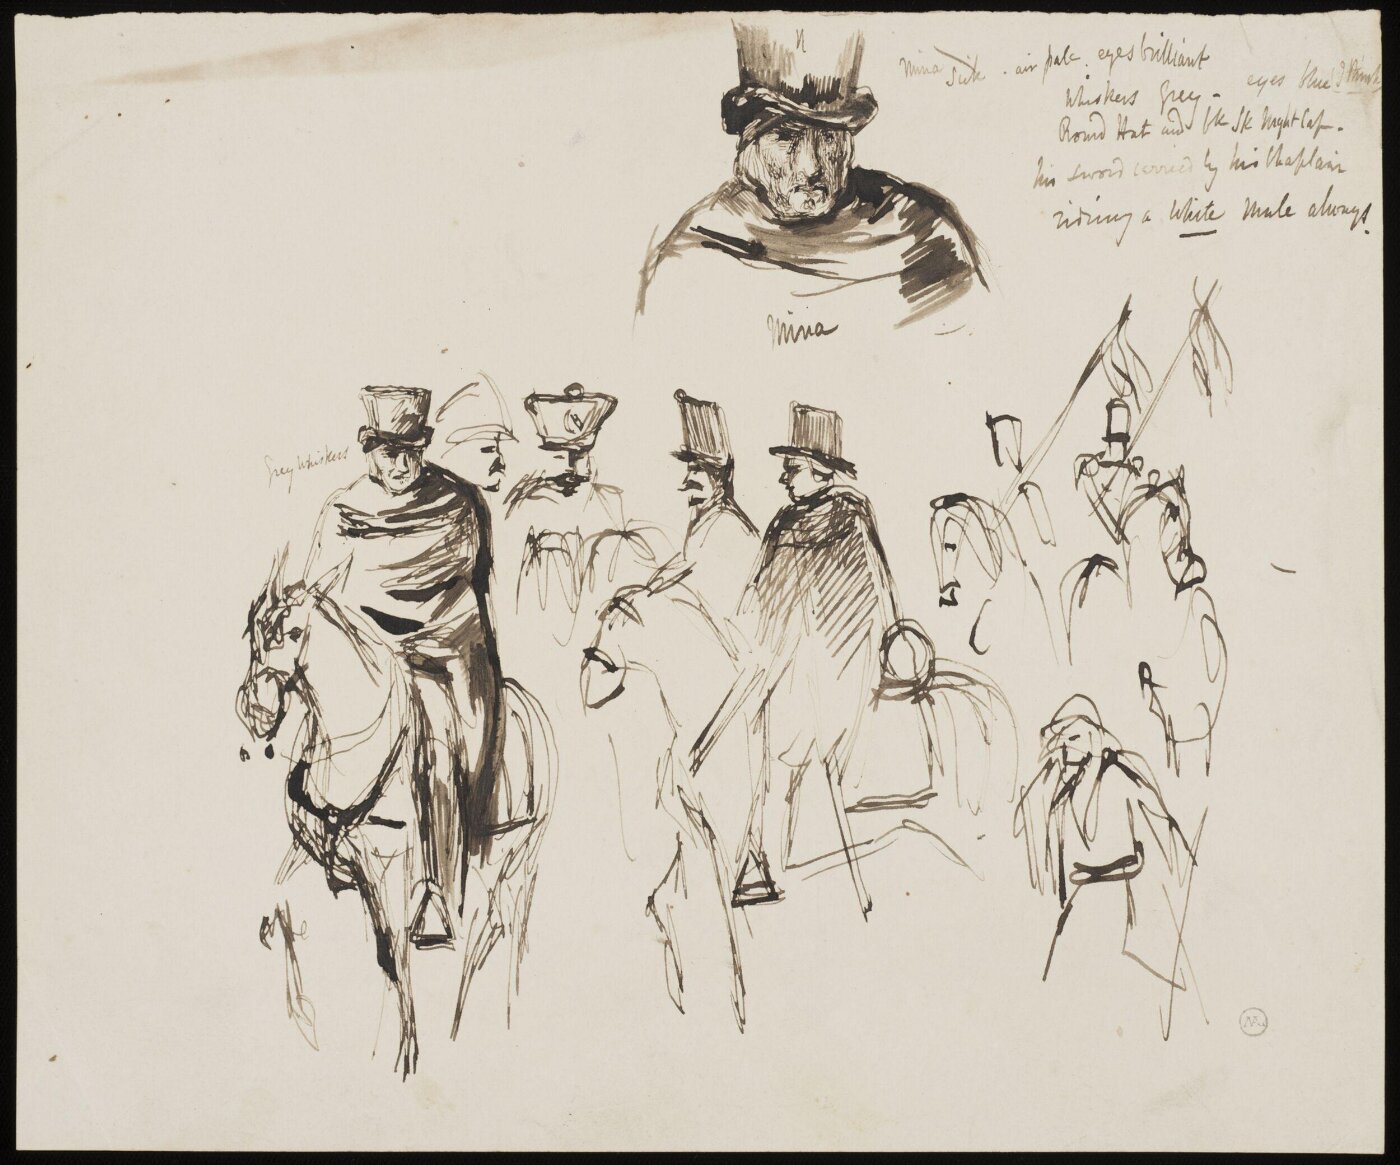 Mina Sick - air pale. eyes brilliant
Whiskers Grey - eyes blue I think
Round Hat and bk Sk Night Cap -
his sword carried by his Chaplain
riding a White Mule always.
Mina
Grey Whiskers